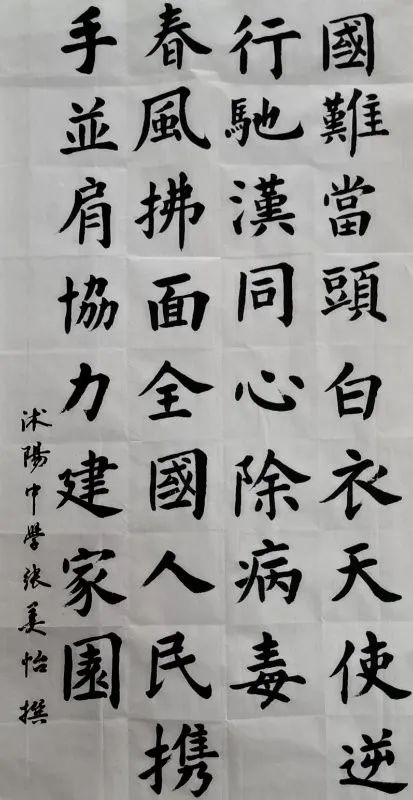 國難當頭白衣天使逆
行馳漢同心除病毒
春風拂面全國人民携
手並肩協力建家園
沭陽中學張美怡撰